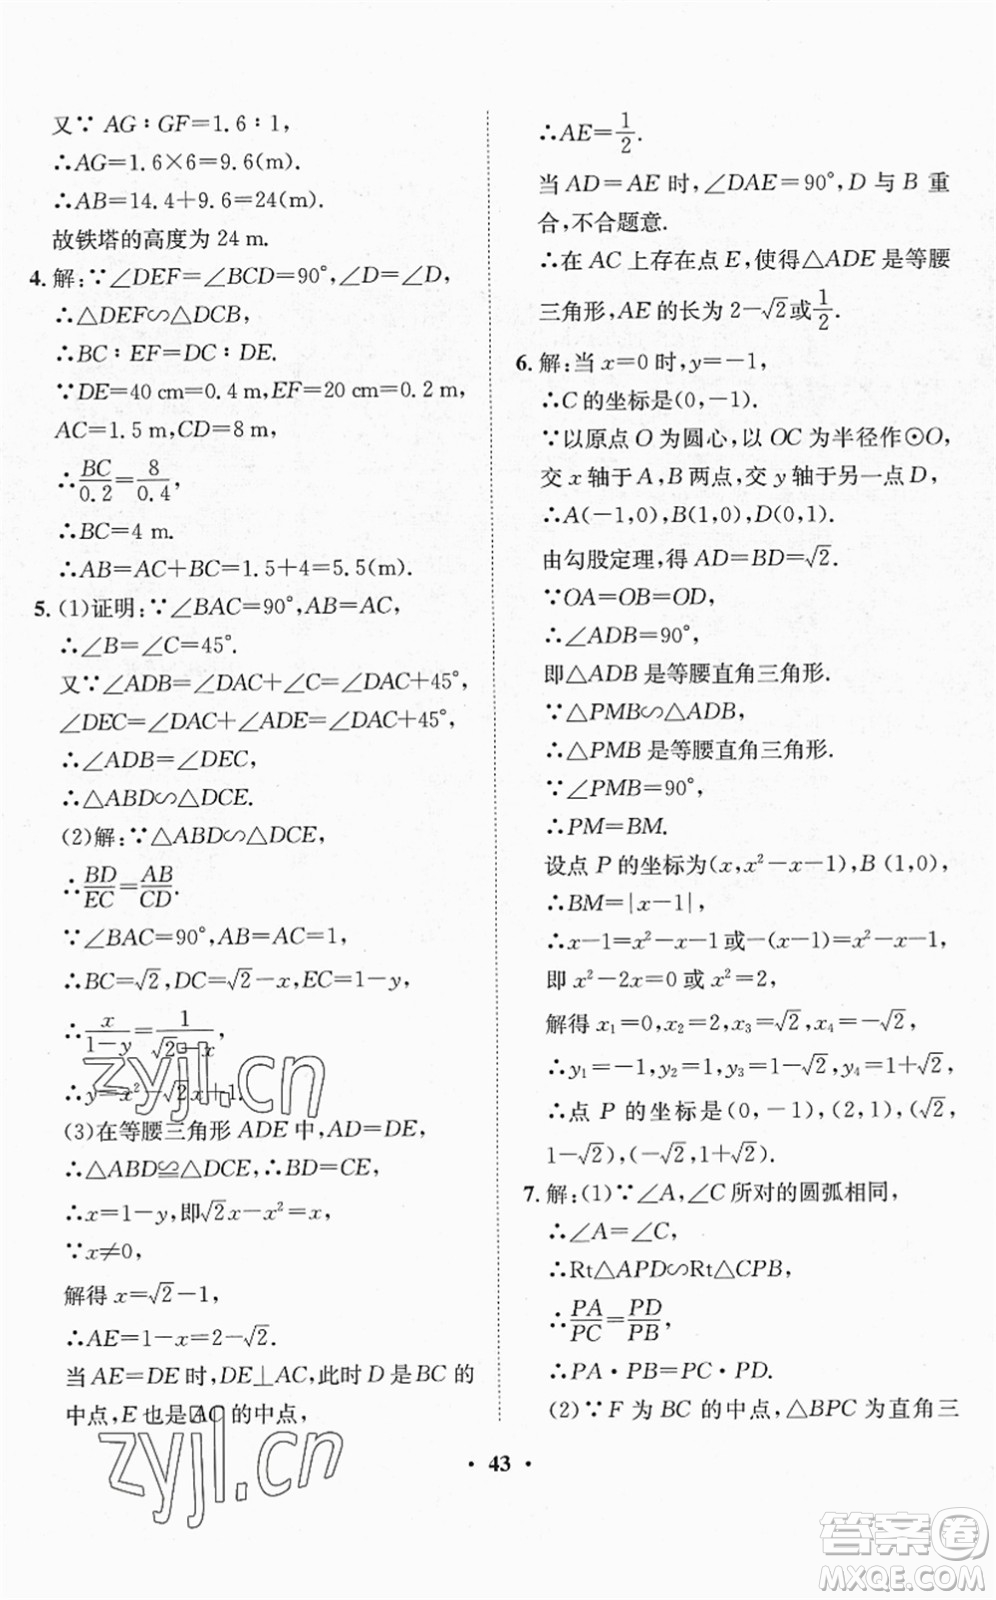 又∵ AG∶GF=1.6∶1,
∴AG=1.6×6=9.6(m).
∴AB=14.4+9.6=24(m).
故铁塔的高度为 24 m.
4. 解:∵∠DEF=∠BCD=90°,∠D=∠D,
∴△DEF∽△DCB,
∴BC∶EF=DC∶DE.
∵DE=40 cm=0.4 m,EF=20 cm=0.2 m,
AC=1.5 m,CD=8 m,
∴BC/0.2=8/0.4,
∴BC=4 m.
∴AB=AC+BC=1.5+4=5.5(m).
5. (1)证明:∵∠BAC=90°,AB=AC,
∴∠B=∠C=45°.
又∵∠ADB=∠DAC+∠C=∠DAC+45°,
∠DEC=∠DAC+∠ADE=∠DAC+45°,
∴∠ADB=∠DEC.
∴△ABD∽△DCE.
(2)解:∵△ABD∽△DCE,
∴BD/EC=AB/CD.
∵∠BAC=90°,AB=AC=1,
∴BC=√2,DC=√2-x,EC=1-y,
∴x/(1-y)=1/(√2-x),
∴y=x²-√2x+1.
(3)在等腰三角形 ADE 中,AD=DE,
∴△ABD≌△DCE,∴BD=CE,
∴x=1-y,即√2x-x²=x,
∵x≠0,
解得 x=√2-1,
∴AE=1-x=2-√2.
当 AE=DE 时,DE⊥AC,此时 D 是 BC 的
中点,E 也是 AC 的中点,
∴AE=1/2.
当 AD=AE 时,∠DAE=90°,D 与 B 重
合,不合题意.
∴在 AC 上存在点 E,使得△ADE 是等腰
三角形,AE 的长为 2-√2或1/2.
6. 解:当 x=0 时,y=-1,
∴C 的坐标是(0,-1).
∵以原点 O 为圆心,以 OC 为半径作⊙O,
交 x 轴于 A,B 两点,交 y 轴于另一点 D,
∴A(-1,0),B(1,0),D(0,1).
由勾股定理,得 AD=BD=√2.
∵OA=OB=OD,
∴∠ADB=90°,
即△ADB 是等腰直角三角形.
∵△PMB∽△ADB,
∴△PMB 是等腰直角三角形.
∵∠PMB=90°,
∴PM=BM.
设点 P 的坐标为(x,x²-x-1),B (1,0),
∴BM=|x-1|,
∴x-1=x²-x-1或-(x-1)=x²-x-1,
即 x²-2x=0 或 x²=2,
解得 x₁=0,x₂=2,x₃=√2,x₄=-√2,
∴y₁=-1,y₂=1,y₃=1-√2,y₄=1+√2,
∴点 P 的坐标是(0,-1),(2,1),(√2,
1-√2),(-√2,1+√2).
7. 解:(1)∵∠A,∠C 所对的圆弧相同,
∴∠A=∠C,
∴Rt△APD∽Rt△CPB,
∴PA/PC=PD/PB,
∴PA·PB=PC·PD.
(2)∵F 为 BC 的中点,△BPC 为直角三
· 43 ·
zyjl.cn
zyjl.cn
答案卷
MXQE.COM